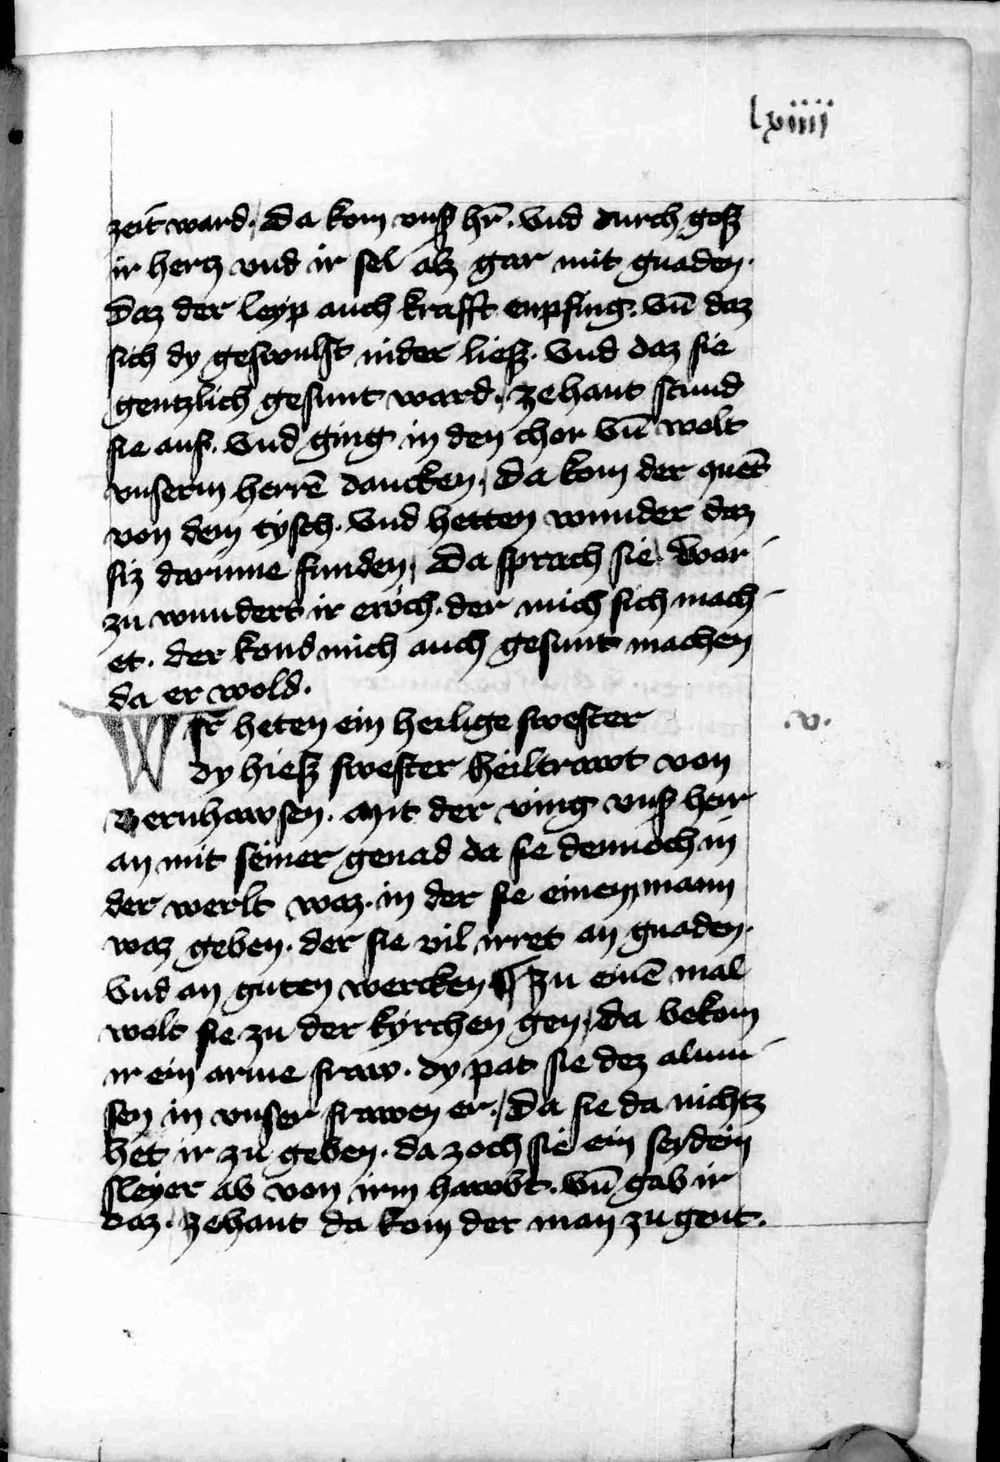 lxiiii
zeit ward. Da kom vnsß hr̄. Vnd durch gosß
ir hertz vnd ir sel alz gar mit gnaden.
Daz der leyp auch krafft enpfing. Vn̄ daz
sich dy geswulst nider liesß. Vnd daz sie
gentzlich gesunt ward. Zehant stund
sie auf. Vnd ging in den chor Vn̄ wolt
vnserm herrē dancken. Da kom der quēt
von dem tysch. Vnd hetten wunder daz
siz darinne funden. Da sprach sie. War-
zu wundert ir ewch. der mich sich mach-
et. der kond mich auch gesunt machen
da er wold.
Wir heten ein heilige swester
.v.
dy hiesß swester Heiltrawt von
Bernhawsen. Mit der ving vnsß herr
an mit seiner genad da sie dennoch in
der werlt waz. in der sie einem mann
waz geben. der sie vil irret an gnaden.
Vnd an guten wercken ¶ Zu einē mal
wolt sie zu der kyrchen gen. Da bekom
ir ein arme fraw. dy pat sie dez almu-
sen in vnser frawen er. Da sie da nichtz
het ir zu geben. da zoch sie ein seydein
sleyer ab von irm hawbt. Vn̄ gab ir
daz. Zehant da kom der man zu gent.